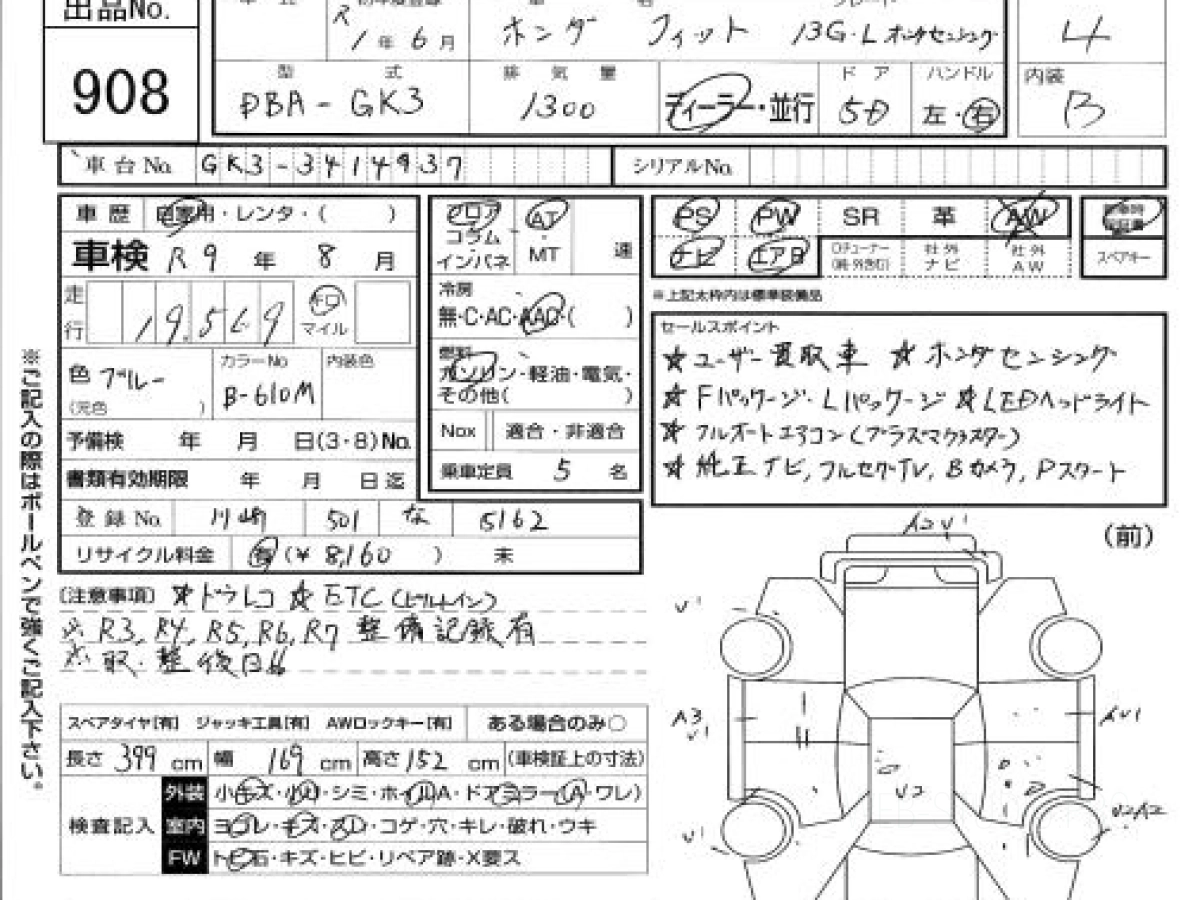 出品No. 908
R1年6月 ホンダ フィット 13G・L ホンダセンシング 4
型式 排気量 ドア ハンドル 内装
DBA-GK3 1300 ディーラー・並行 5D 左・右 B
車台No. GK3-3414937 シリアルNo.
車歴 自家用・レンタ・( )
車検 R9年 8月
走行 キロ マイル
色 ブルー (元色 ) カラーNo B-610M 内装色
予備検 年 月 日(3・8)No.
書類有効期限 年 月 日迄
登録No. 川崎 501 な 5162
リサイクル料金 有(¥8,160 ) 未
フロア コラム インパネ AT・MT 速
冷房
無・C・AC・AAC・( )
燃料
ガソリン・軽油・電気・
その他( )
Nox 適合・非適合
乗車定員 5 名
PS PW SR 革 AW
ナビ エアB 社外ナビ 社外AW スペアキー
※上記太枠内は標準装備品
セールスポイント
★ユーザー買取車 ★ホンダセンシング
★Fパッケージ・Lパッケージ ★LEDヘッドライト
★フルオートエアコン(プラズマクラスター)
★純正ナビ,フルセグTV,Bカメラ,Pスタート
〔注意事項〕★ドラレコ ★ETC(ビルトイン)
※R3, R4, R5, R6, R7 整備記録有
※取・整後日
スペアタイヤ[有] ジャッキ工具[有] AWロックキー[有] ある場合のみ○
長さ 399 cm 幅 169 cm 高さ 152 cm (車検証上の寸法)
検査記入
外装 小キズ・小凹・シミ・ホイルA・ドアミラー(A・ワレ)
室内 ヨゴレ・キズ・スレ・コゲ・穴・キレ・破れ・ウキ
FW トビ石・キズ・ヒビ・リペア跡・X要ス
※ご記入の際はボールペンで強くご記入下さい。
(前)
A2 V1
V1
A3 V1
AV1
V2
V1
V2A2